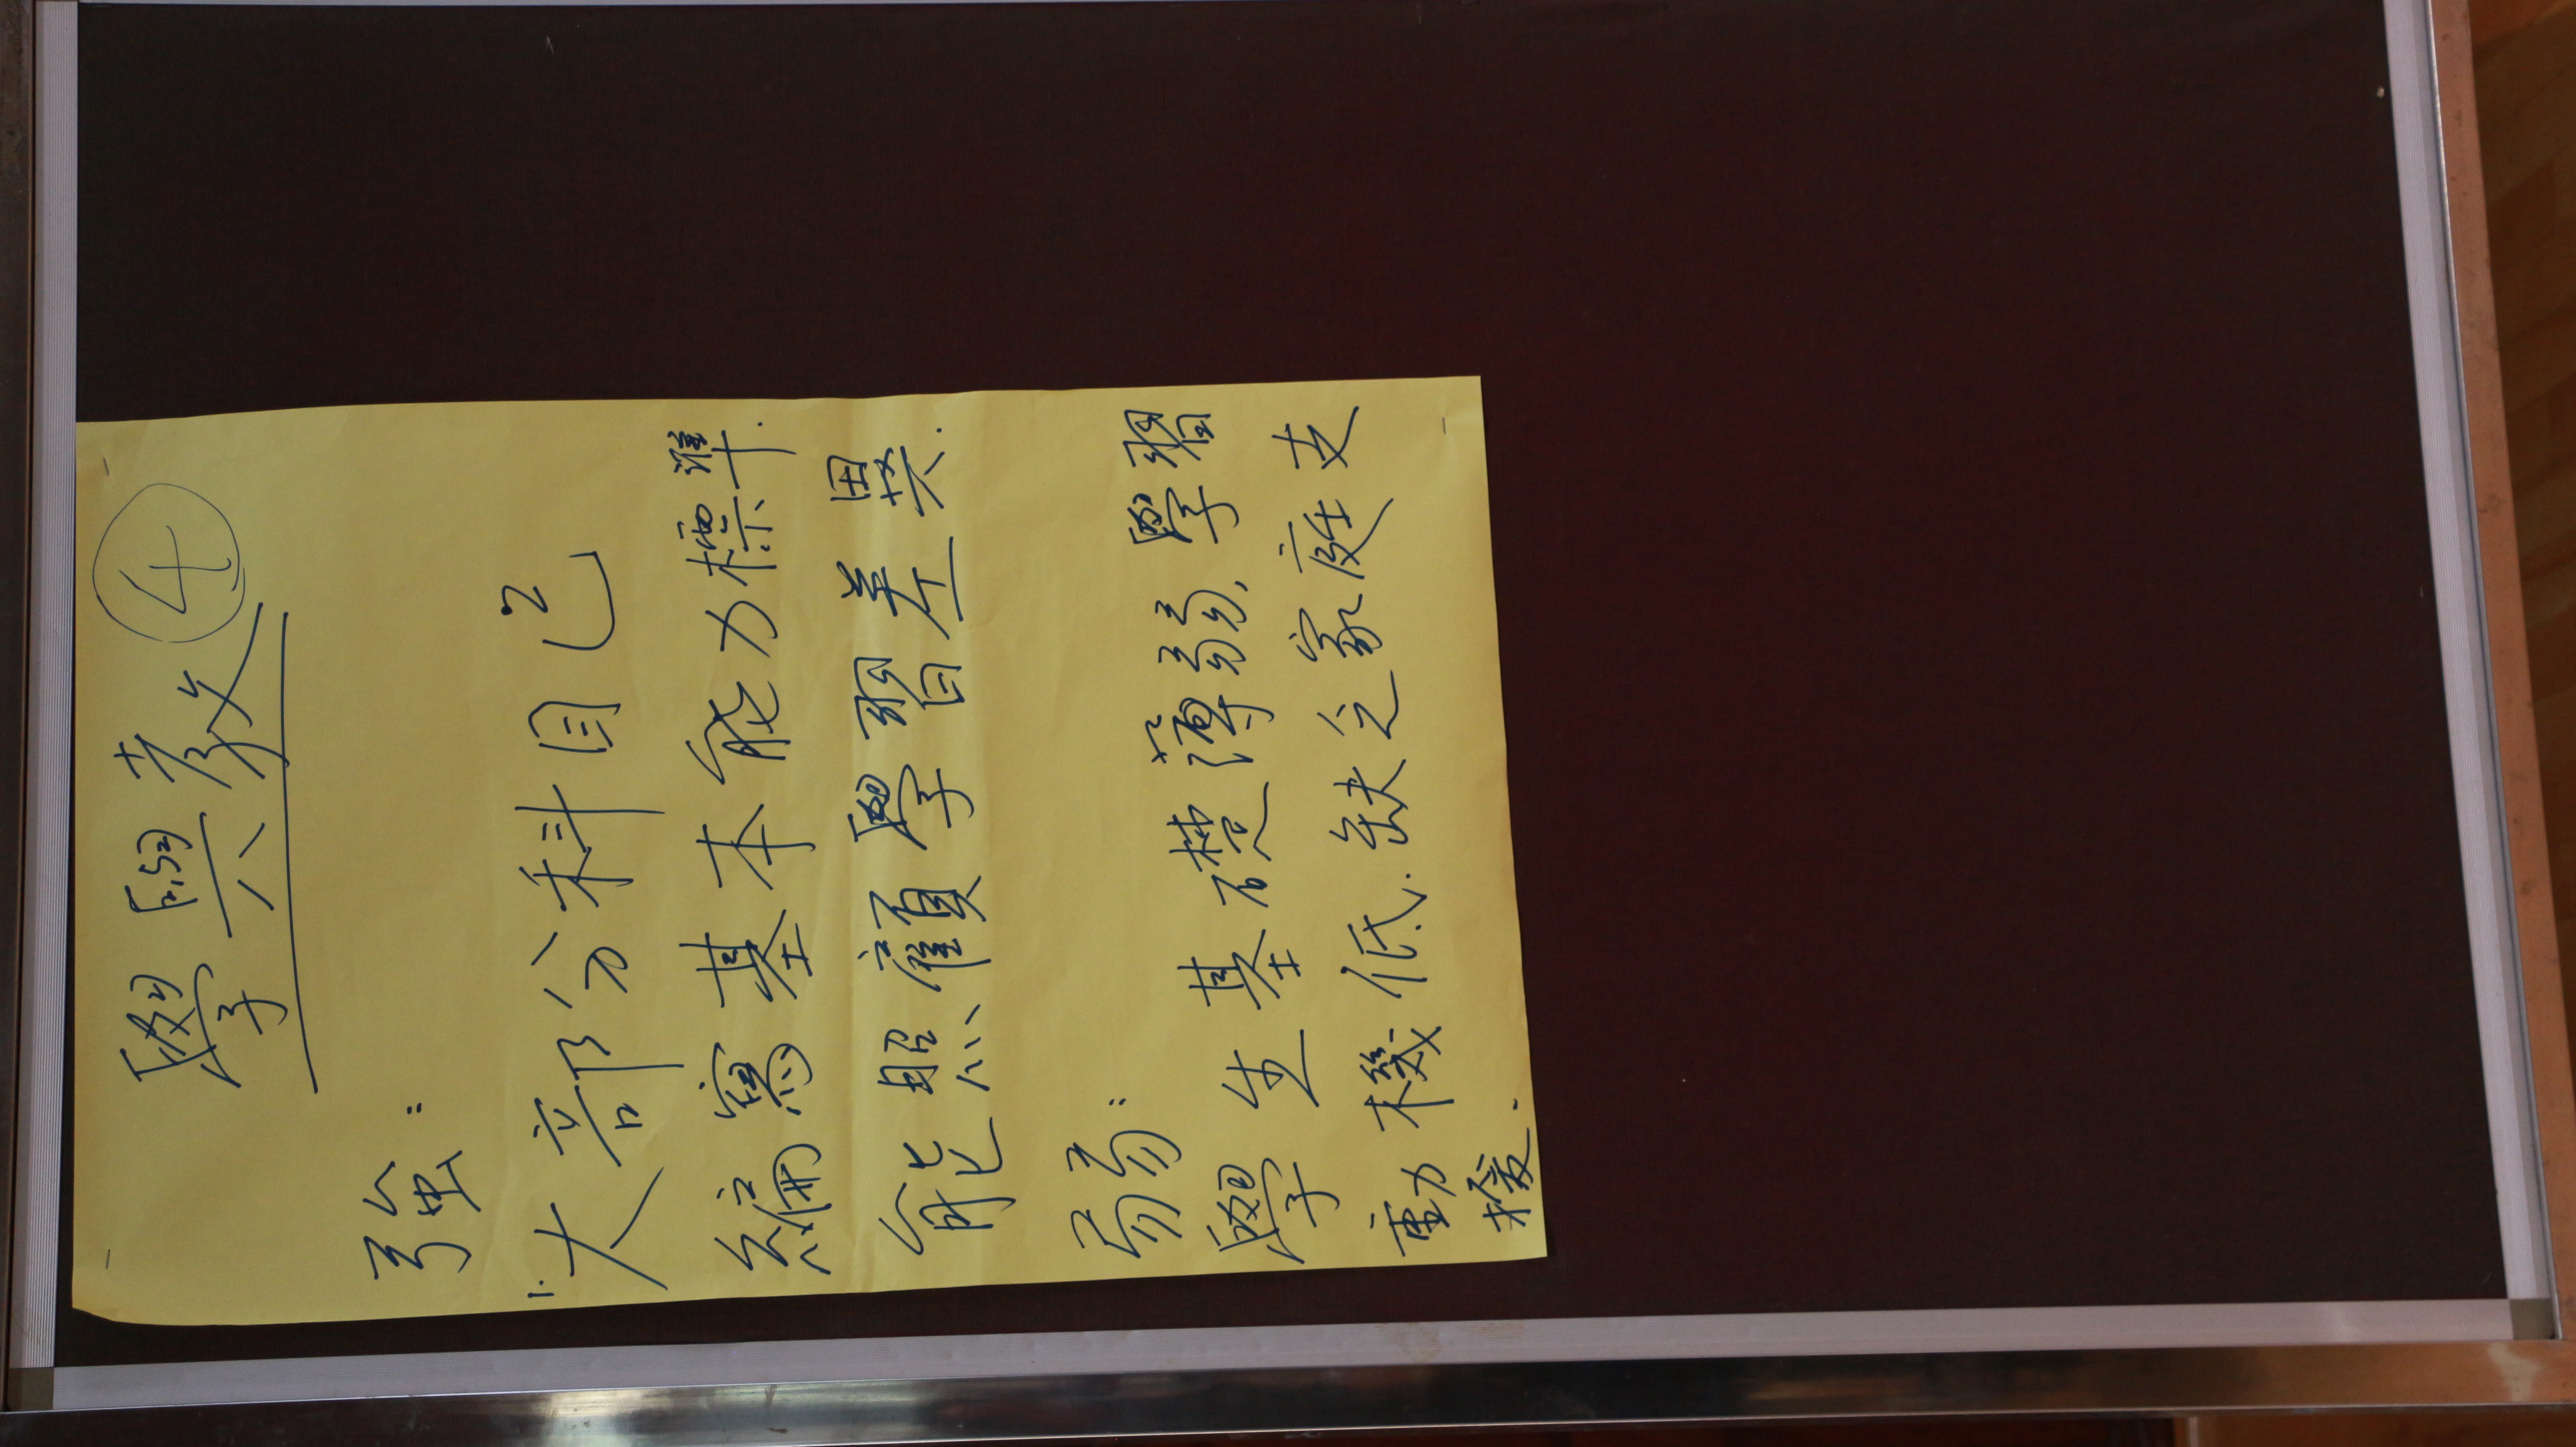 學與教 ④
強：
1. 大部分科目已
編寫基本能力標準.
能照顧學習差異.
弱：
學生基礎薄弱，學習
動機低、缺乏家庭支
援.